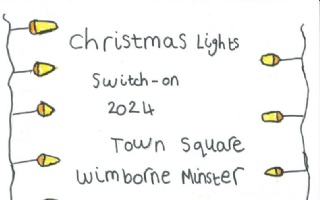 Christmas Lights
Switch-on
2024
Town Square
Wimborne Minster